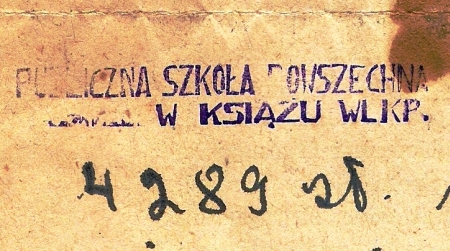 PUBLICZNA SZKOŁA POWSZECHNA
W KSIĄŻU WLKP.
4289 zł.